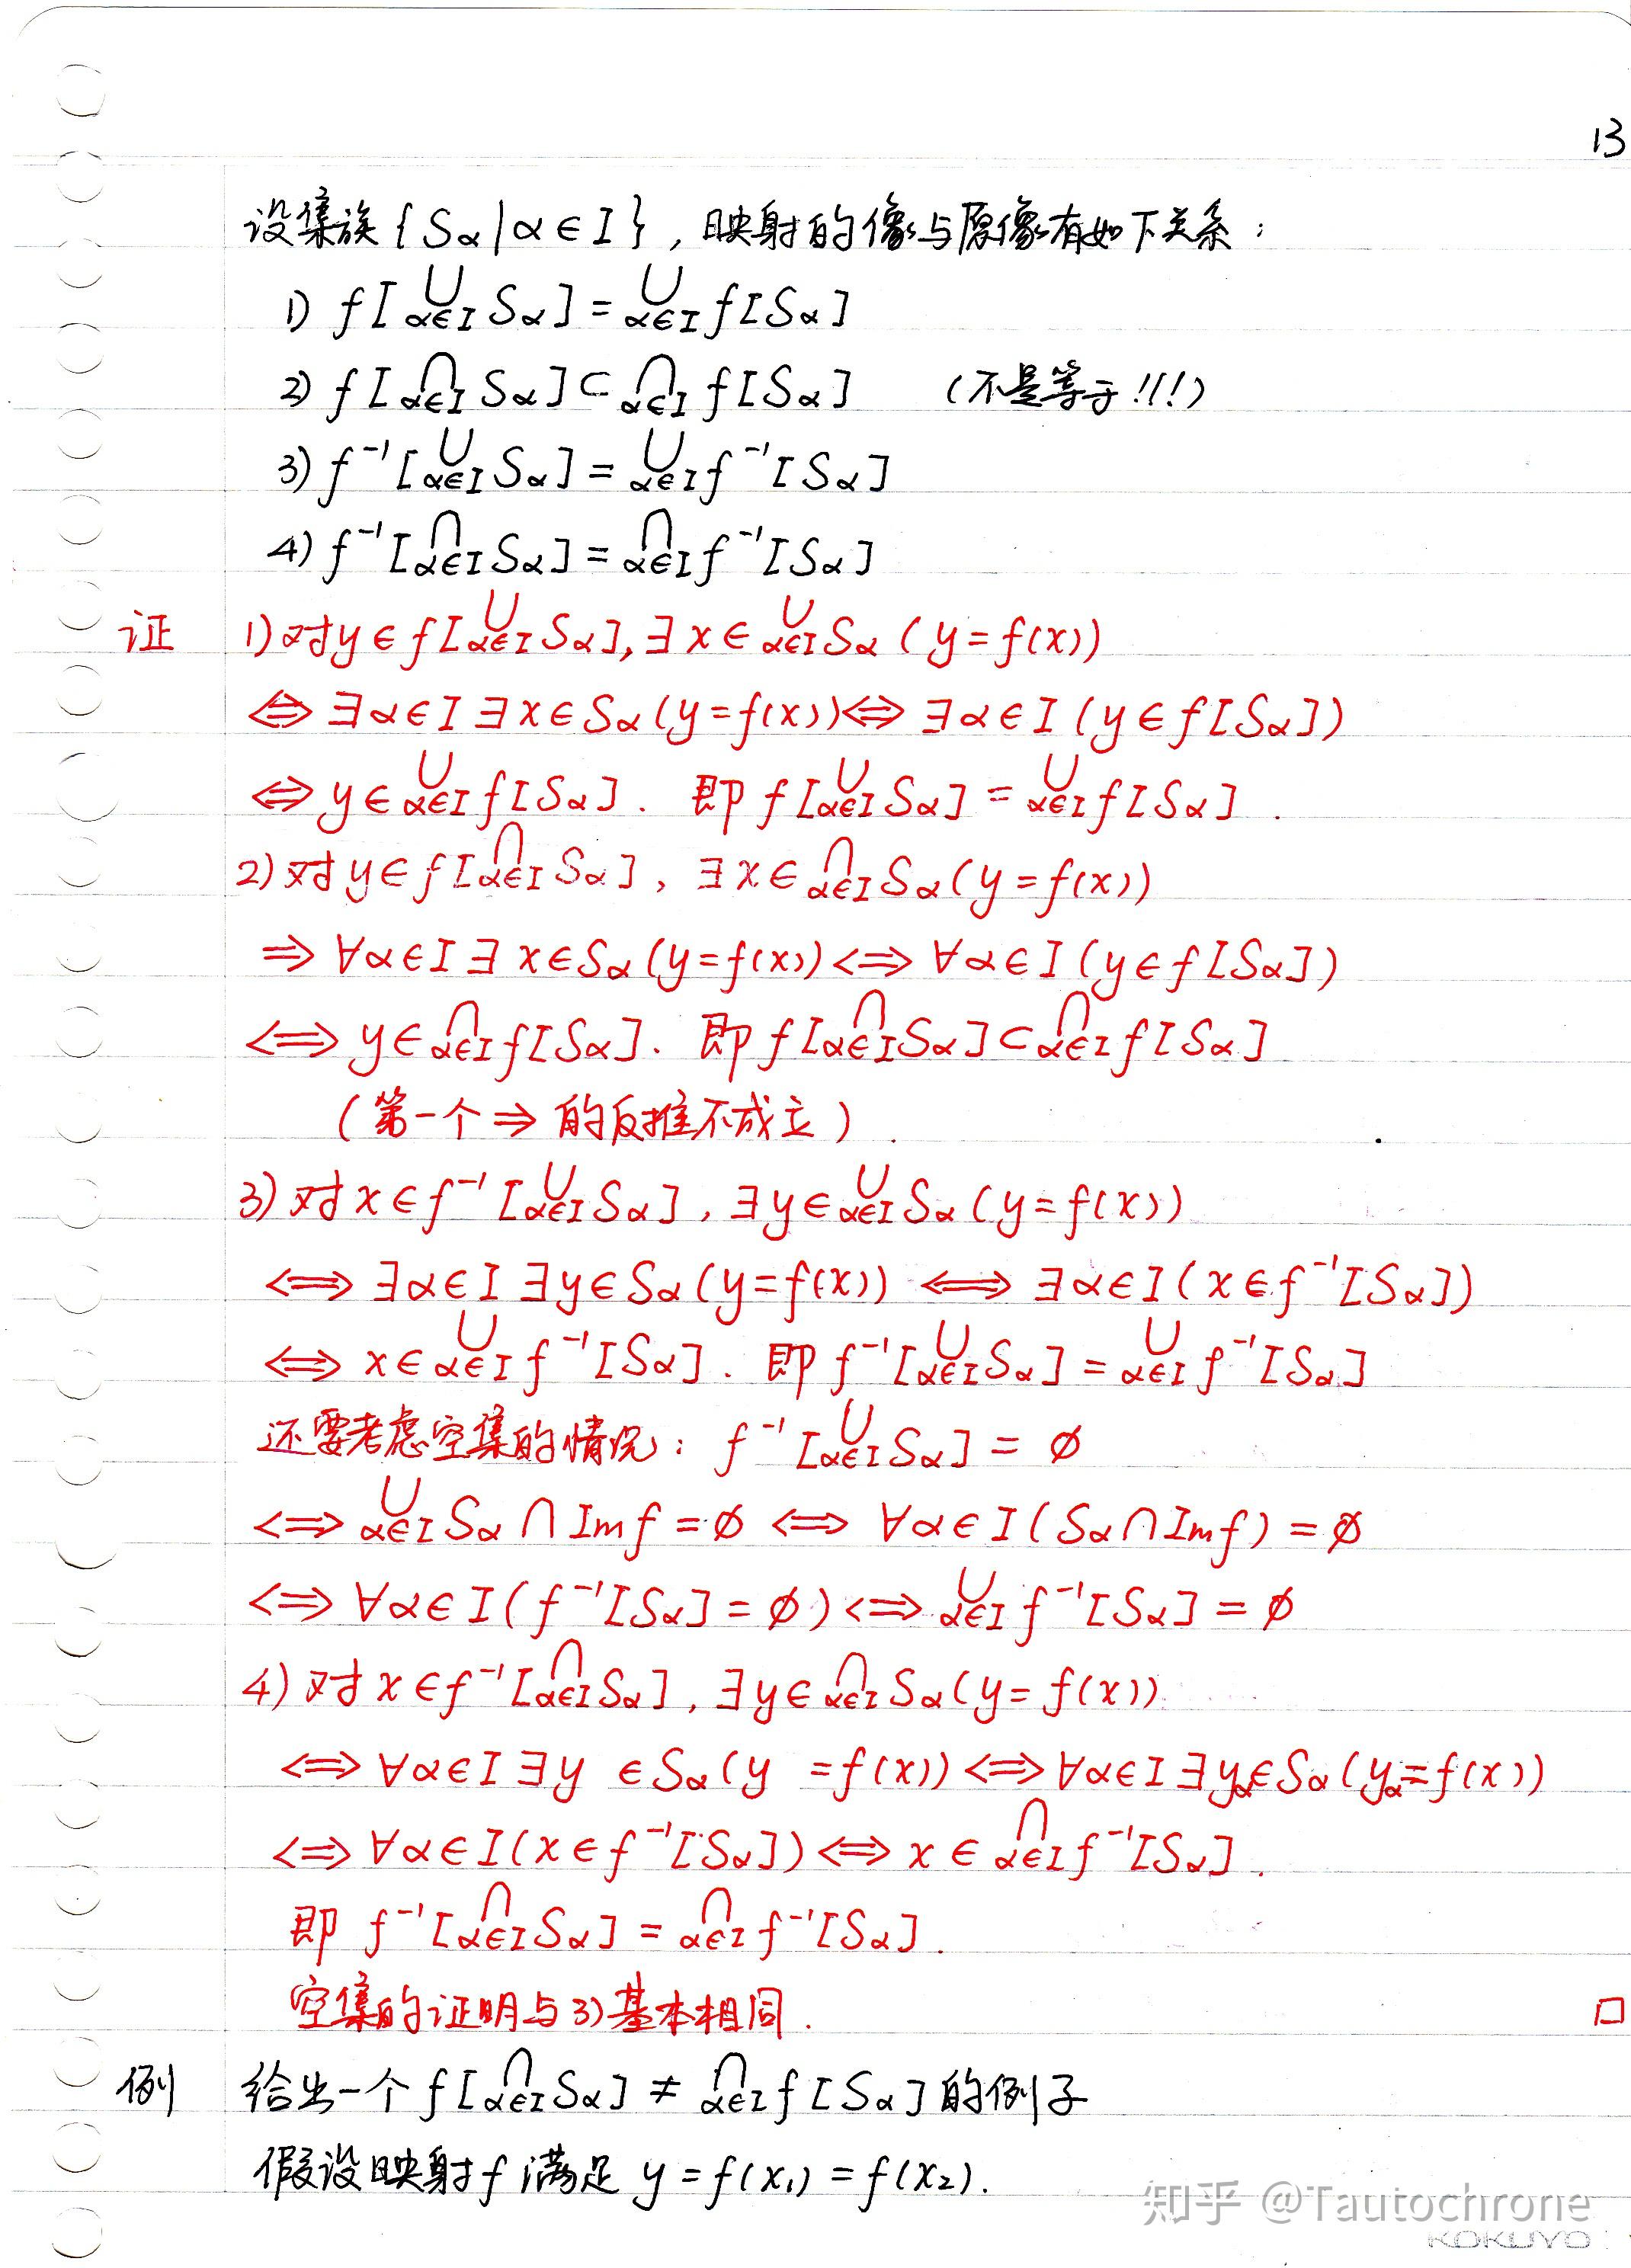 13
设集族 {Sα|α∈I}, 映射的像与原像有如下关系:
1) f[⋃α∈I Sα] = ⋃α∈I f[Sα]
2) f[⋂α∈I Sα] ⊂ ⋂α∈I f[Sα] (不是等于!!!)
3) f⁻¹[⋃α∈I Sα] = ⋃α∈I f⁻¹[Sα]
4) f⁻¹[⋂α∈I Sα] = ⋂α∈I f⁻¹[Sα]
证 1) 对y∈f[⋃α∈I Sα], ∃x∈⋃α∈I Sα (y=f(x))
⇔ ∃α∈I ∃x∈Sα(y=f(x)) ⇔ ∃α∈I (y∈f[Sα])
⇔ y∈⋃α∈I f[Sα]. 即 f[⋃α∈I Sα] = ⋃α∈I f[Sα].
2) 对y∈f[⋂α∈I Sα], ∃x∈⋂α∈I Sα(y=f(x))
⇒ ∀α∈I ∃x∈Sα(y=f(x)) ⇔ ∀α∈I(y∈f[Sα])
⇔ y∈⋂α∈I f[Sα]. 即 f[⋂α∈I Sα]⊂⋂α∈I f[Sα]
(第一个⇒的反推不成立).
3) 对x∈f⁻¹[⋃α∈I Sα], ∃y∈⋃α∈I Sα(y=f(x))
⇔ ∃α∈I ∃y∈Sα(y=f(x)) ⇔ ∃α∈I(x∈f⁻¹[Sα])
⇔ x∈⋃α∈I f⁻¹[Sα]. 即 f⁻¹[⋃α∈I Sα] = ⋃α∈I f⁻¹[Sα]
还要考虑空集的情况: f⁻¹[⋃α∈I Sα] = ∅
⇔ ⋃α∈I Sα∩Imf=∅ ⇔ ∀α∈I(Sα∩Imf)=∅
⇔ ∀α∈I(f⁻¹[Sα]=∅) ⇔ ⋃α∈I f⁻¹[Sα]=∅
4) 对x∈f⁻¹[⋂α∈I Sα], ∃y∈⋂α∈I Sα(y=f(x))
⇔ ∀α∈I ∃y ∈Sα(y =f(x)) ⇔ ∀α∈I ∃yα∈Sα(yα=f(x))
⇔ ∀α∈I(x∈f⁻¹[Sα]) ⇔ x∈⋂α∈I f⁻¹[Sα].
即 f⁻¹[⋂α∈I Sα] = ⋂α∈I f⁻¹[Sα].
空集的证明与3)基本相同. □
例 给出一个 f[⋂α∈I Sα] ≠ ⋂α∈I f[Sα] 的例子
假设映射f满足 y=f(x₁)=f(x₂).
知乎 @Tautochrone
KOKUYO